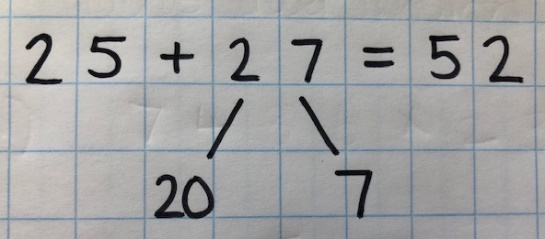 25 + 27 = 52
20 7